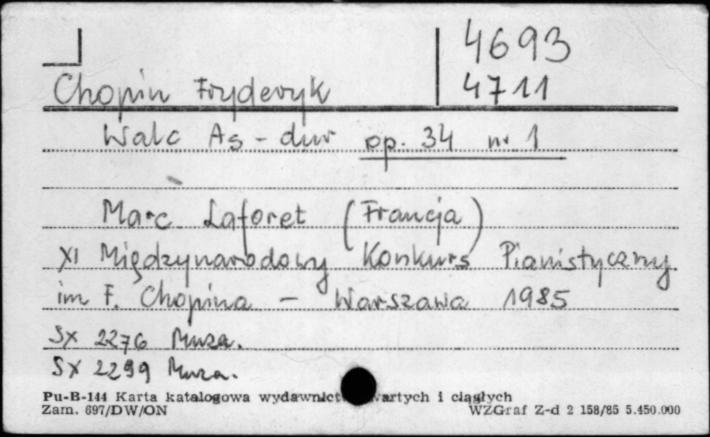 4693
Chopin Fryderyk 4711
Walc As-dur op. 34 nr 1
Marc Laforet (Francja)
XI Międzynarodowy Konkurs Pianistyczny
im F. Chopina - Warszawa 1985
SX 2276 Muza.
SX 2299 Muza.
Pu-B-144 Karta katalogowa wydawnict wartych i ciągłych
Zam. 697/DW/ON WZGraf Z-d 2 158/85 5.450.000